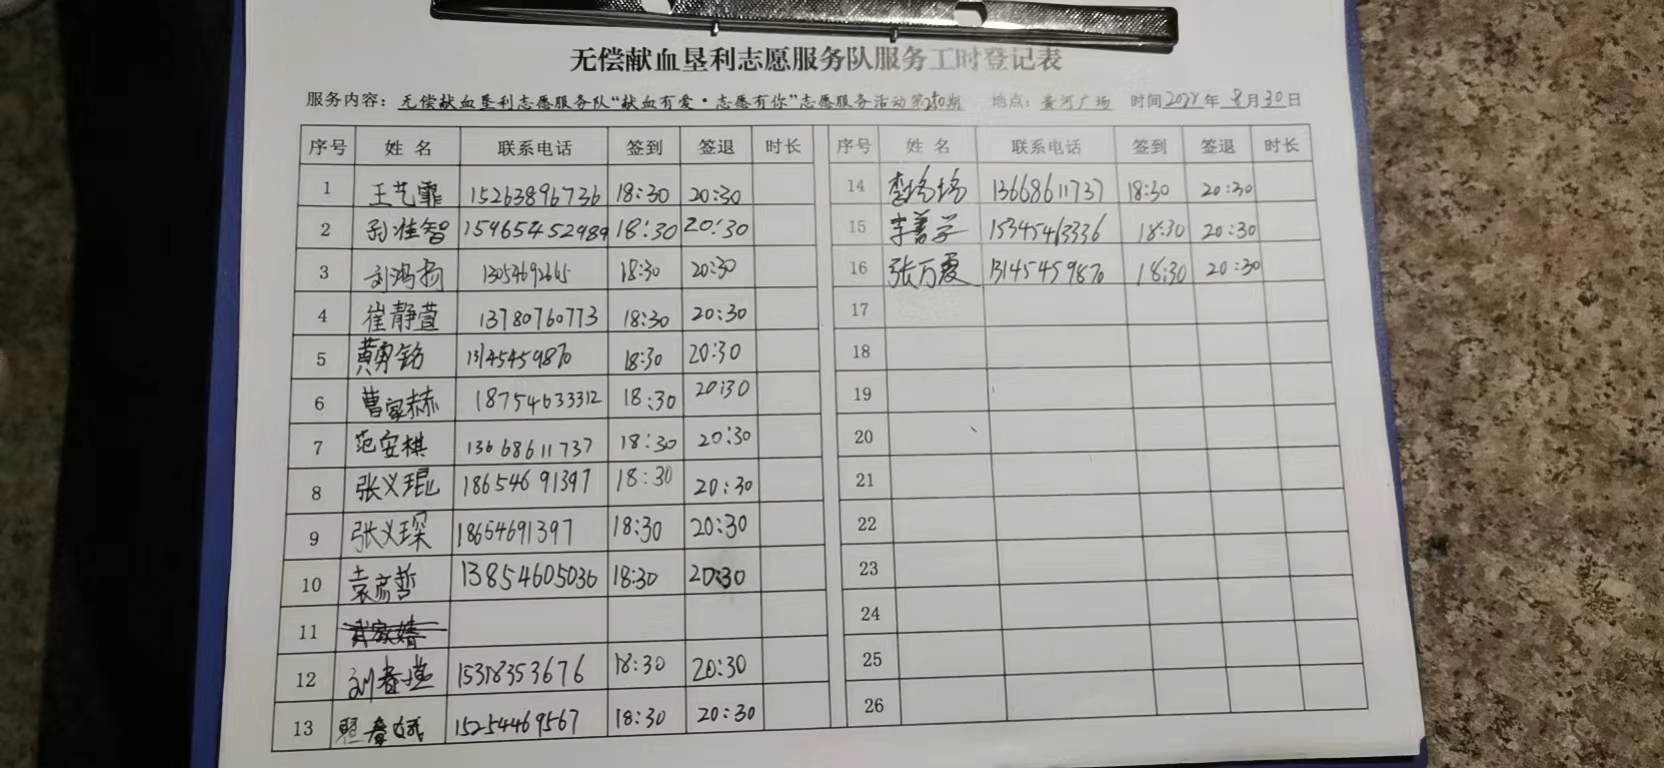 无偿献血垦利志愿服务队服务工时登记表
服务内容：无偿献血垦利志愿服务队“献血有爱·志愿有你”志愿服务活动第 期 地点：黄河广场 时间 年 8月30日
序号 姓名 联系电话 签到 签退 时长 序号 姓名 联系电话 签到 签退 时长
1 王艺霏 15263896736 18:30 20:30 14 李杨杨 13668611737 18:30 20:30
2 孙佳智 15965452989 18:30 20:30 15 李善学 15345463336 18:30 20:30
3 刘鸿扬 18:30 20:30 16 张万霞 13145459870 18:30 20:30
4 崔静萱 13780760773 18:30 20:30 17
5 黄勇铭 13145459870 18:30 20:30 18
6 曹家赫 18754633312 18:30 20:30 19
7 范安棋 13668611737 18:30 20:30 20
8 张义琨 18654691397 18:30 20:30 21
9 张义琛 18654691397 18:30 20:30 22
10 袁彦哲 13854605036 18:30 20:30 23
11 24
12 刘春 15318353676 18:30 20:30 25
13 15254469567 18:30 20:30 26